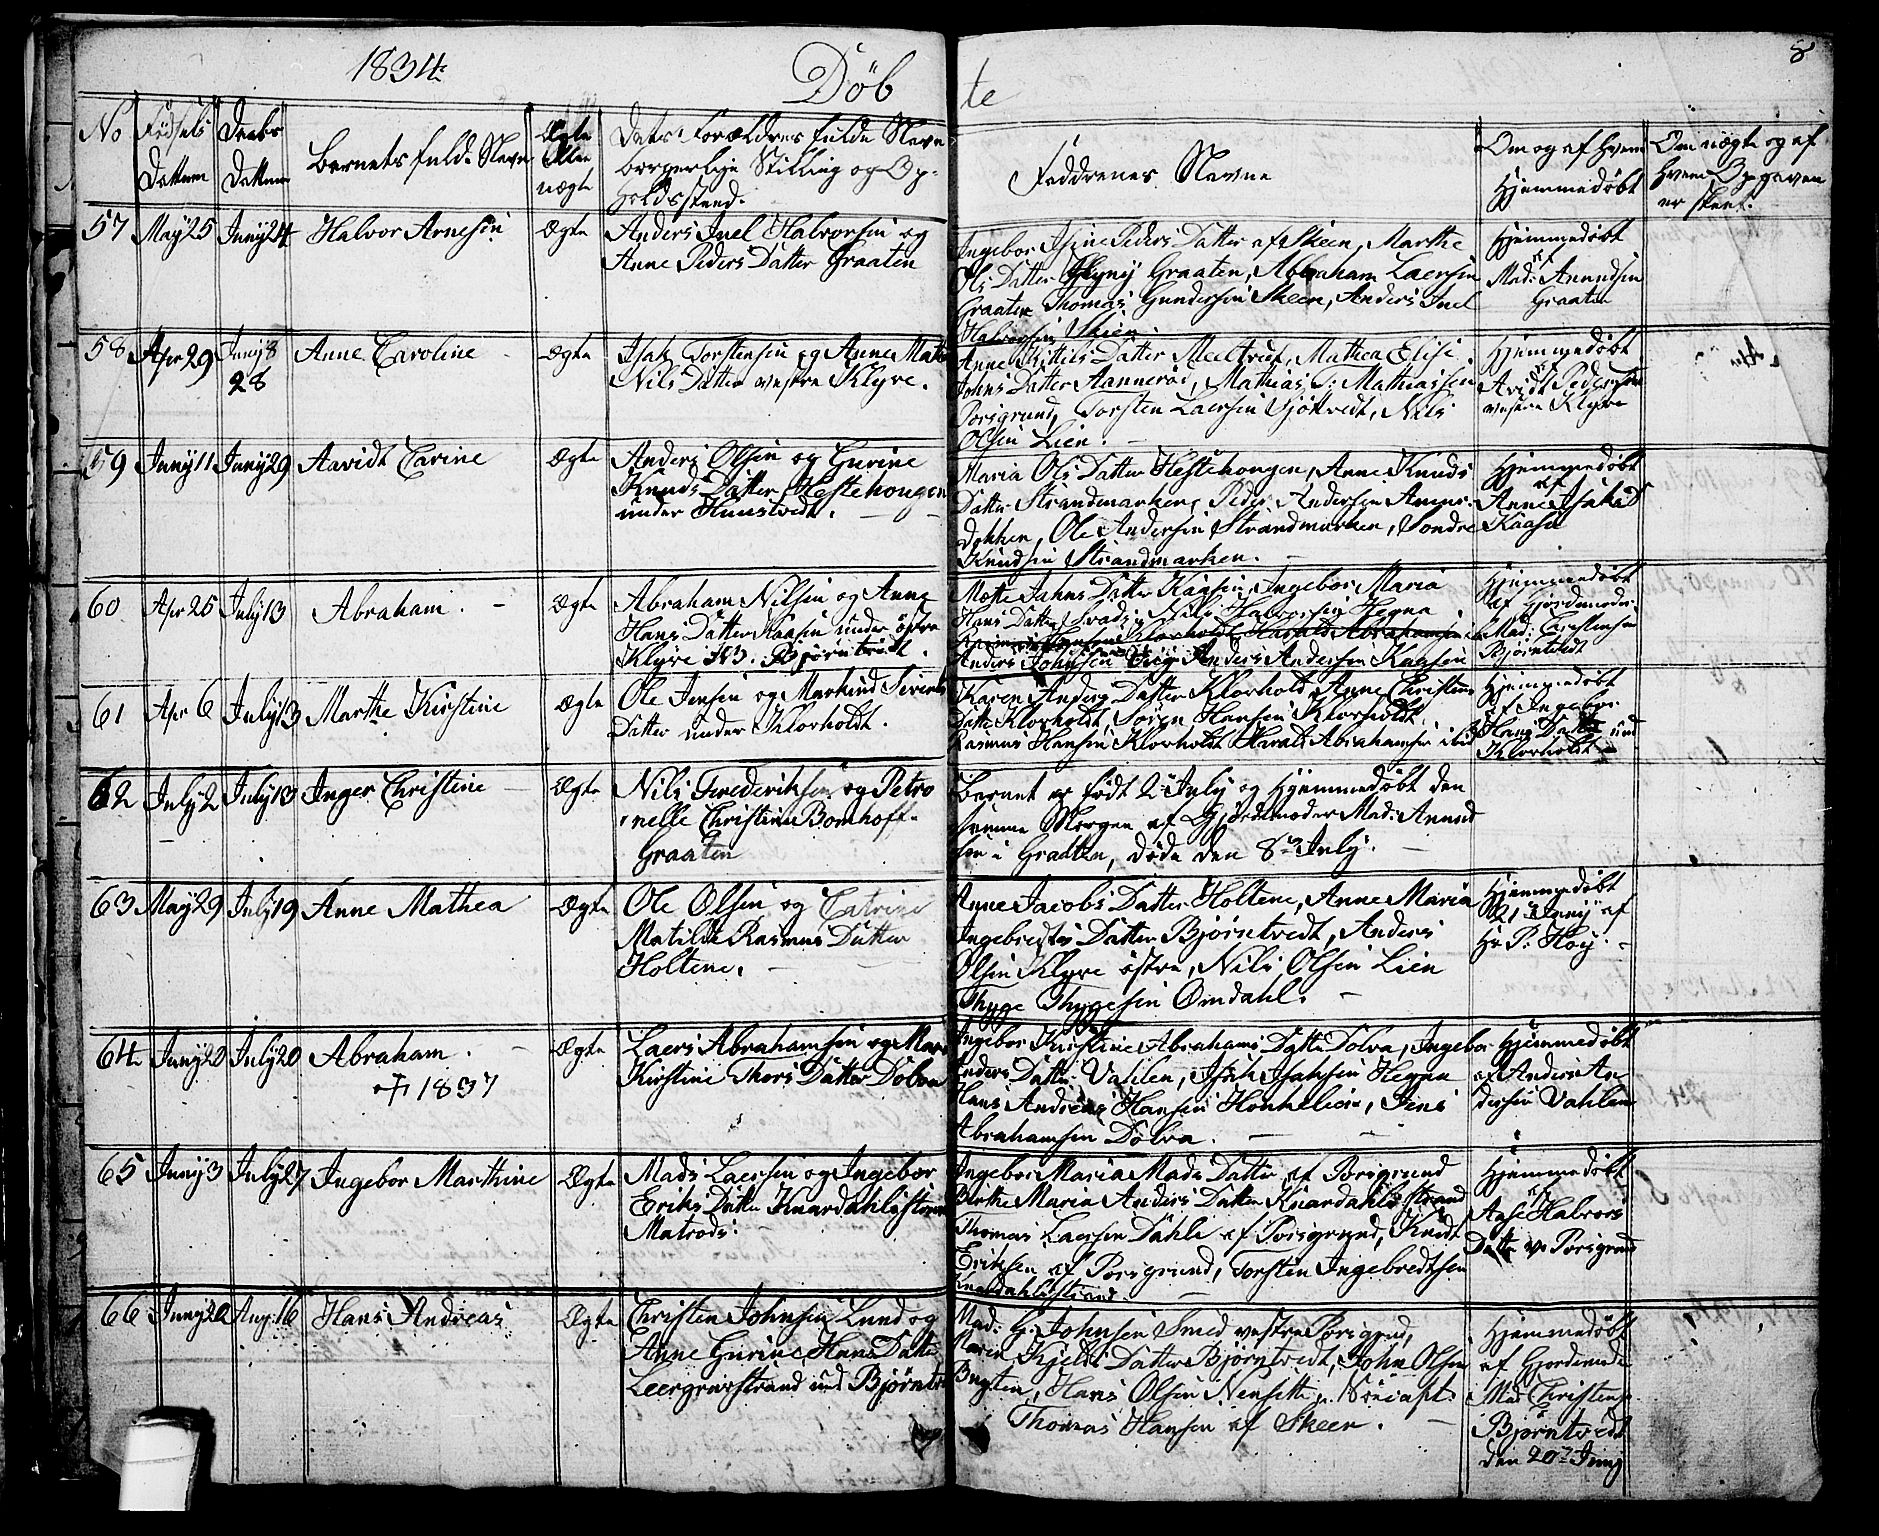 1834
Døbte
8
No
Fødsels Dattum
Daabs Dattum
Barnets fulde Navn
Ægte Eller uægte
Dets Forældres fulde Navn
borgerlige Stilling og Op-
holdsstand.
Faddrenes Navne
Om og af hvem
Hjemmedøbt
Om uægte og af
hvem Opgaven
er skeet.
57 May 25 Juny 24 Halvor Arnesin Ægte
Anders Juel Halvorsin og
Anne Peders Datter Graaten
Ingebor Peders Datter af Skeen, Marthe
Ols Datter Graaten, Abraham Laersin
Graaten Thomas Gundersin Skeen, Anders Juel
Halvorsin Skien.
Hjemmedøbt
af
Mad: Annundsin
Graaten
58 Apr 29 Juny 8 Anne Caroline Ægte
28
Isak Torstensin og Anne
Nils Datter vestre Klyve.
Anne Kittils Datter Meeltvedt, Mathea Elise
Johns Datter Aannerød, Mathias T: Mathiassen
Porsgrund, Torsten Laersin Sjøttvedt, Nils
Olsin Lien.
Hjemmedøbt
af
Aridt Pedersen
vestre Klyve
59 Juny 11 Juny 29 Aavidt Carine Ægte
Anders Olsin og Gurine
Knuds Datter Hestehougen
under
Maria Ols Datter Hestehougen, Anne Knuds
Datter Strandmarken, Peder Andersen
Ole Andersin Strandmarken, Sondre
Knudsin Strandmarken.
Hjemmedøbt
af
Anne Isaks D
Kaasa
60 Apr 25 July 13 Abraham. Ægte
Abraham Nilsin og Anne
Hans Datter Kaasin under østre
Klyve N3. Bjørntvedt.
Mette Jahns Datter Kaasin, Ingebor Maria
Hans Datter Nils Halvorsin Hegna
Klovholdt Harald Abrahamsin
Anders Johnsen Anders Andersen Kaasin
Hjemmedøbt
af Gjordemoder
Mad: Christensen
Bjørntvedt
61 Apr 6 July 13 Marthe Kirstine Ægte
Ole Jensin og Sivers
Datter under Klovholdt.
Karen Anders Datter Klovholdt, Anne Christens
Datter Klovholdt, Søren Hansin Klovholdt
Rasmus Hansin Klovholdt Harald Abrahamsen ibid
Hjemmedøbt
af Ingebor
Hans Datter und
Klovholdt
62 July 2 July 13 Inger Christine Ægte
Nils Frederiksin og Petro
nelle Christine Bomhoff
Graaten
Barnet er født 2 July og hjemmedøbt den
samme Morgen af Gjordemoder Mad: Annund
sen i Graaten, døde den 8de July.
63 May 29 July 19 Anne Mathea Ægte
Ole Olsin og Catrine
Matilde Rasmus Datter
Holtene.
Anne Jacobs Datter Holtene, Anne Maria
Ingebredts Datter Bjørntvedt, Anders
Olsin Klyve østre, Nils Olsin Lien
Thyge Thygesin Omdahl.
Hjemmedøbt
21 Juny af
Hr P: Høy.
64 Juny 20 July 20 Abraham. Ægte
+ 1837
Laers Abrahamsin og Maren
Kirstine Thors Datter Dolva
Ingebor Kirstine Abrahams Datter Dolva, Ingebor
Anders Datter Vahlen, Isak Isaksin Hegna
Hans Andreas Hansin, Jens
Abrahamsin Dolva.
Hjemmedøbt
af Anders An
dersin Vahlen
65 Juny 3 July 27 Ingebor Marthine Ægte
Mads Laersin og Ingebor
Eriks Datter Knardahlsstrand
Matrods.
Ingebor Maria Mads Datter af Porsgrund
Berthe Maria Anders Datter Knardahlsstrand
Thomas Laersen Dahle af Porsgrund, Knudt
Eriksen af Porsgrund, Torsten Ingebredtsen
Knardahlsstrand.
Hjemmedøbt
af
Halvors
Datter v. Porsgrund
66 Juny 20 Aug: 16 Hans Andreas Ægte
Christen Johnsin Lund og
Anne Gurine Hans Datter
Leergravstrand und Bjørntvedt
Mad: G: Johnsen Smed vestre Porsgrund,
Maren Kjelds Datter Bjørntvedt, John Olsin
Hans Olsin Nensette
Thomas Hansen af Skeen.
Hjemmedøbt
af Gjordemoder
Mad Christens
Bjørntvedt
den 20de Juny